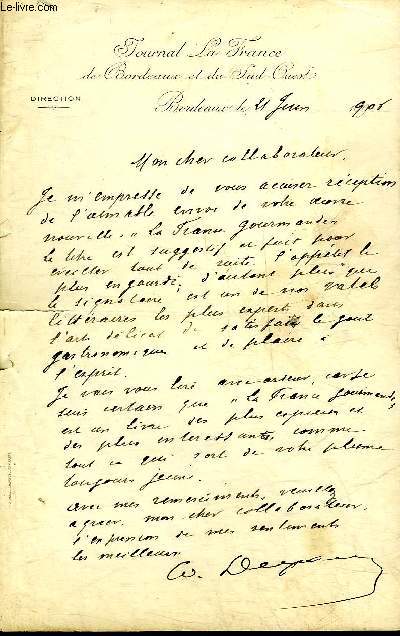 Le-livre.com
Journal La France
de Bordeaux et du Sud-Ouest
DIRECTION
Bordeaux le 21 Juin 190
Mon cher collaborateur,
Je m'empresse de vous accuser réception
de l'aimable envoi de votre œuvre
nouvelle. "La France Gourmande"
Le titre est suggestif et fait pour
éveiller tout de suite l'appétit le
plus engourdi, d'autant plus que
le signataire est un de nos Vatel
littéraires les plus expert dans
l'art délicat de satisfaire le goût
gastronomique et de plaire à
l'esprit.
Je vais vous lire avec ardeur, car je
suis certain que "La France Gourmande"
est un livre des plus copieux et
des plus intéressants, comme
tout ce qui sort de votre plume
toujours jeune.
Avec mes remerciements, veuillez
agréer, mon cher collaborateur,
l'expression de mes sentiments
les meilleurs